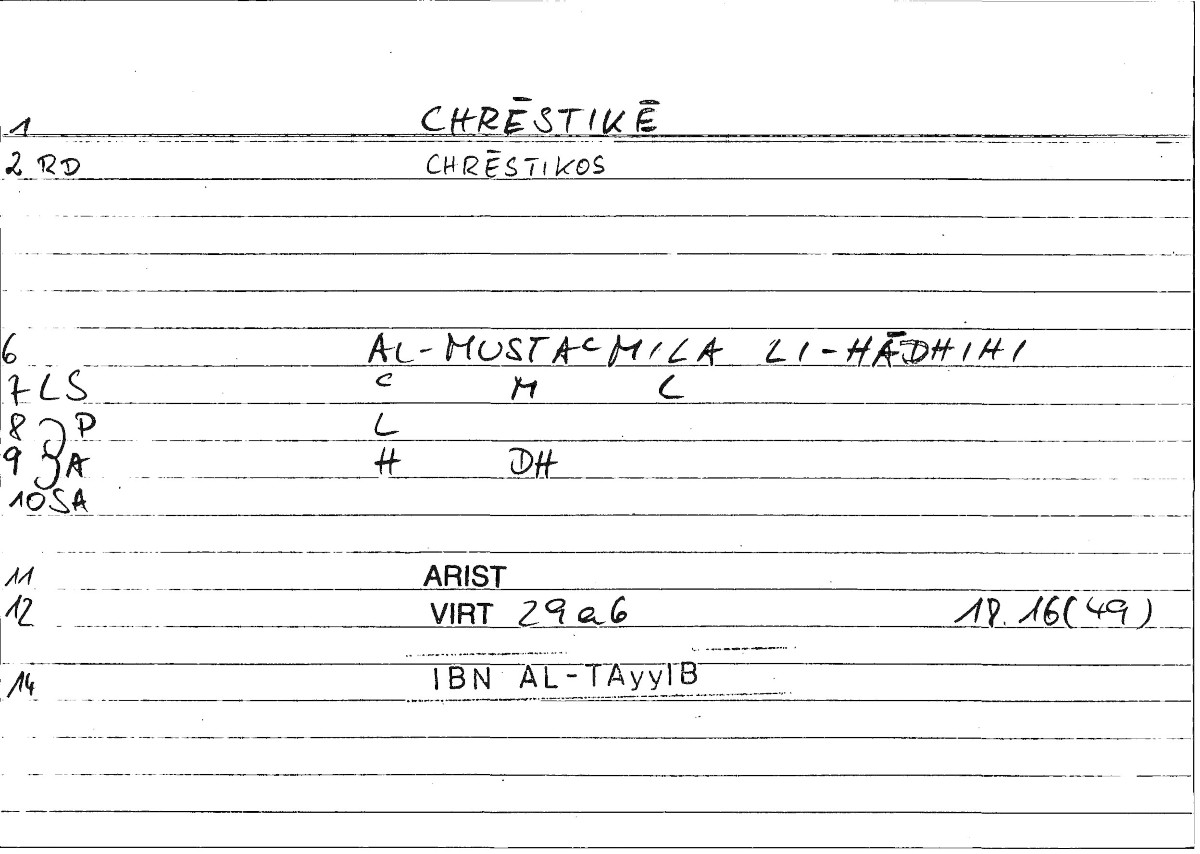 1 CHRĒSTIKĒ
2 RD CHRĒSTIKOS
6 AL-MUSTAᶜMILA LI-HĀDHIHI
7 LS ᶜ M L
8 P L
9 A H DH
10 SA
11 ARIST
12 VIRT 29a6 18.16(49)
14 IBN AL-TAyyIB